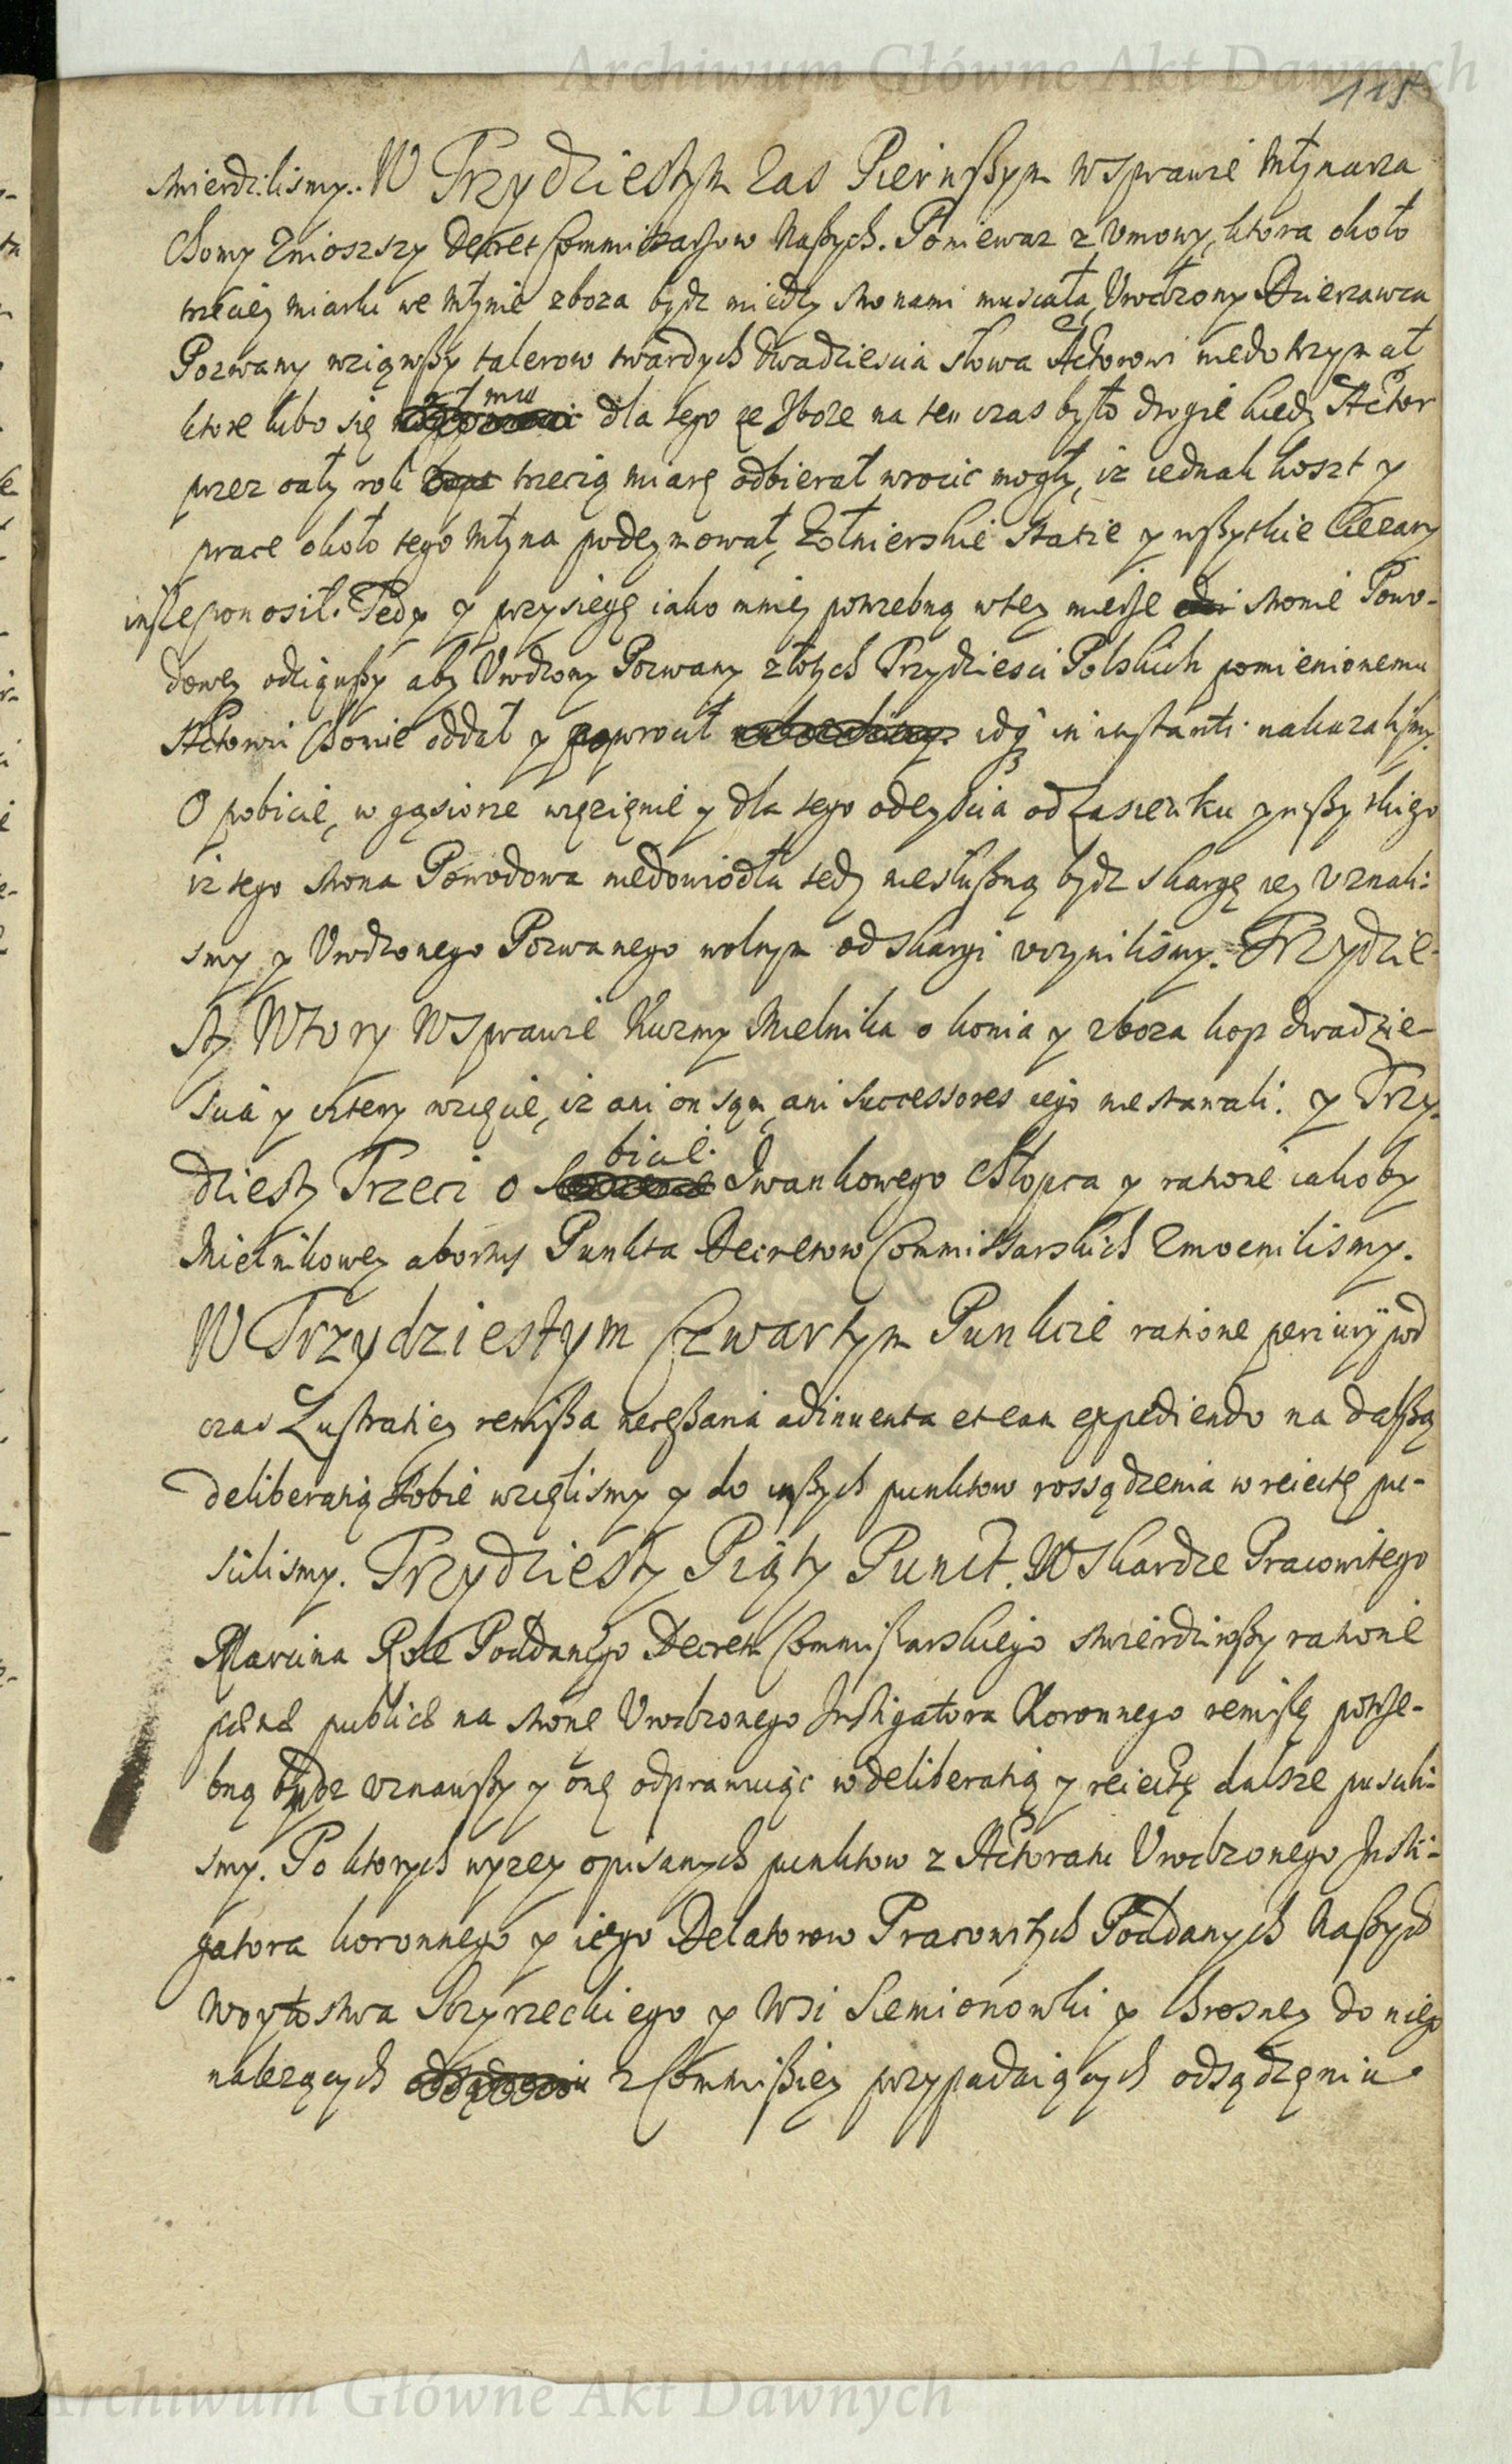 Archiwum Główne Akt Dawnych
115
stwierdziliśmy. W Trzydziestym zas Pierwszym w sprawie Młynarza
Chomy zniosszy Decret Commissarzow Naszych. Poniewaz z Vmowy, ktora około
trzeciey miarki we Młynie zboza bydz miedzy stronami musiała, Vrodzony Dzierzawca
Pozwany wziąwszy talerow twardych dwadziescia słowa Actorowi niedotrzymał
ktore lubo się mu dla tego ze zboze na ten czas było drogie kiedy Actor
przez cały rok trzecią miarę odbierał wrocic mogły, iz iednak koszt y
prace około tego Młyna podeymował, Zołnierskie stacie y wszytkie Ciezary
insze ponosił. Tedy y przysięgę iako mniey potrzebną w tey mierze stronie Powo-
dowey odiąwszy aby Vrodzony Pozwany złotych Trzydziesci Polskich pomienionemu
Actorowi Chomie oddał y powrocił idq3 in instanti nakazalismy.
O pobicie, w gąsiorze więzięnie y dla tego odeyscia od zasiewku y wszytkiego
iz tego strona Powodowa niedowiodła tedy niesłuszną bydz skargę iey Vznali-
smy y Vrodzonego Pozwanego wolnym od skargi vczynilismy. Trzydzie-
sty Wtory W sprawie Kuzmy Mielnika o konia y zboza kop dwadzie-
scia y cztery wzięcie, iz ani on sąm, ani successores iego niestawali. y Trzy-
dziesty Trzeci o bicie Iwankowego Chłopca y ratione iakoby
Mielnikowey abortus Punkta Decretow Commissarskich Zmocnilismy.
W Trzydziestym Czwartym Punkcie ratione periurij pod
czas Lustratiey remissa necessaria adinuenta et eam expediendo na dalszą
deliberatią Sobie wzięlismy y do inszych punktow rossądzenia w reiectę pu-
scilismy. Trzydziesty Piąty Punct. W Skardze Pracowitego
Marcina Role Poddanego Decret Commissarskiego stwierdziwszy ratione
pænæ publicæ na stronę Vrodzonego Instigatora Koronnego remissę potrze-
bną bydz vznawszy y onę odprawuiąc w deliberatią y reiectę dalsze puscili-
smy. Po ktorych wyzey opisanych punktow z Actoratu Vrodzonego Insti-
gatora koronnego y iego Delatorow Pracowitych Poddanych Naszych
Woytostwa Szczyrzeckiego y Wsi Siemionowki y Brosney do niego
nalezących z Commissiey przypadaiących odsądzęniu
Archiwum Główne Akt Dawnych